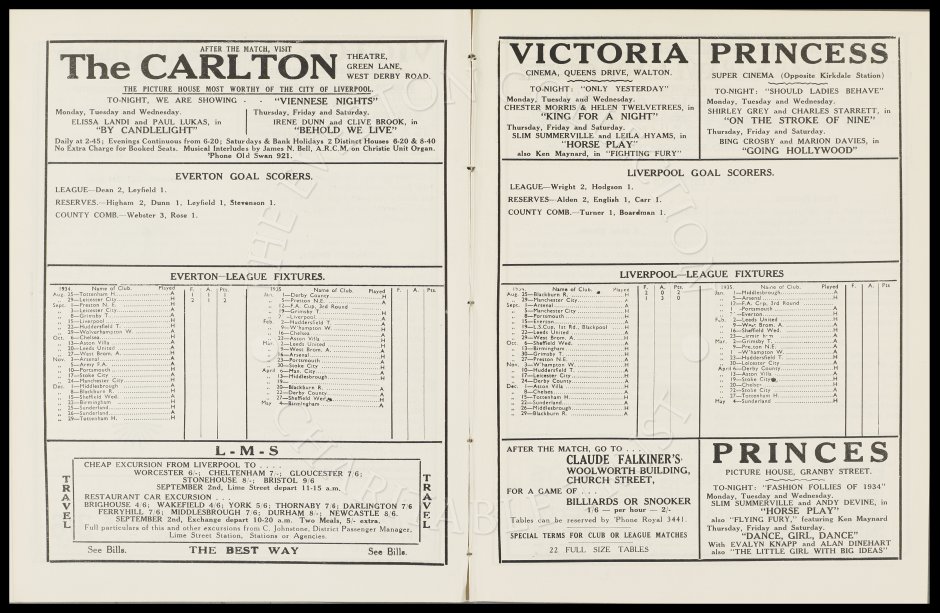 AFTER THE MATCH, VISIT
The CARLTON
THEATRE,
GREEN LANE,
WEST DERBY ROAD.
THE PICTURE HOUSE MOST WORTHY OF THE CITY OF LIVERPOOL.
TO-NIGHT, WE ARE SHOWING - - "VIENNESE NIGHTS"
Monday, Tuesday and Wednesday.
ELISSA LANDI and PAUL LUKAS, in
"BY CANDLELIGHT"
Thursday, Friday and Saturday.
IRENE DUNN and CLIVE BROOK, in
"BEHOLD WE LIVE"
Daily at 2-45; Evenings Continuous from 6-20; Saturdays & Bank Holidays 2 Distinct Houses 6-20 & 8-40
No Extra Charge for Booked Seats. Musical Interludes by James N. Bell, A.R.C.M. on Christie Unit Organ.
'Phone Old Swan 921.
EVERTON GOAL SCORERS.
LEAGUE—Dean 2, Leyfield 1.
RESERVES.—Higham 2, Dunn 1, Leyfield 1, Stevenson 1.
COUNTY COMB.—Webster 3, Rose 1.
EVERTON—LEAGUE FIXTURES.
1934. Name of Club. Played F. A. Pts.
Aug. 25—Tottenham H. A 1 1 1
29—Leicester City H 2 1 2
Sept. 1—Preston N. E. H
3—Leicester City A
8—Grimsby T. A
15—Liverpool H
22—Huddersfield T. A
29—Wolverhampton W. H
Oct. 6—Chelsea A
13—Aston Villa H
20—Leeds United A
27—West Brom. A. H
Nov. 3—Arsenal A
5—Army F.A.
10—Portsmouth H
17—Stoke City A
24—Manchester City H
Dec. 1—Middlesbrough A
8—Blackburn R. H
15—Sheffield Wed. A
22—Birmingham H
25—Sunderland A
26—Sunderland H
29—Tottenham H. H
1935 Name of Club. Played F. A. Pts.
Jan. 1—Derby County H
5—Preston N.E. A
12—F.A. Cup, 3rd Round
19—Grimsby T. H
Liverpool A
Feb. 2—Huddersfield T. H
9—W'hampton W. A
16—Chelsea H
23—Aston Villa A
Mar. 2—Leeds United H
9—West Brom. A. A
16—Arsenal H
23—Portsmouth A
30—Stoke City H
April 6—Man. City A
13—Middlesbrough H
19—
20—Blackburn R. A
22—Derby County A
27—Sheffield Wed. H
May 4—Birmingham A
L-M-S
TRAVEL
CHEAP EXCURSION FROM LIVERPOOL TO . . . .
WORCESTER 6/-; CHELTENHAM 7/-; GLOUCESTER 7/6;
STONEHOUSE 8/-; BRISTOL 9/6
SEPTEMBER 2nd, Lime Street depart 11-15 a.m.
RESTAURANT CAR EXCURSION . . .
BRIGHOUSE 4/6; WAKEFIELD 4/6; YORK 5/6; THORNABY 7/6; DARLINGTON 7/6
FERRYHILL, 7/6; MIDDLESBROUGH 7/6; DURHAM 8/-; NEWCASTLE 8/6.
SEPTEMBER 2nd, Exchange depart 10-20 a.m. Two Meals, 5/- extra.
Full particulars of this and other excursions from C. Johnstone, District Passenger Manager,
Lime Street Station, Stations or Agencies.
TRAVEL
See Bills. THE BEST WAY See Bills.
VICTORIA
CINEMA, QUEENS DRIVE, WALTON.
TO-NIGHT: "ONLY YESTERDAY"
Monday, Tuesday and Wednesday.
CHESTER MORRIS & HELEN TWELVETREES, in
"KING FOR A NIGHT"
Thursday, Friday and Saturday.
SLIM SUMMERVILLE and LEILA HYAMS, in
"HORSE PLAY"
also Ken Maynard, in "FIGHTING FURY"
PRINCESS
SUPER CINEMA (Opposite Kirkdale Station)
TO-NIGHT: "SHOULD LADIES BEHAVE"
Monday, Tuesday and Wednesday.
SHIRLEY GREY and CHARLES STARRETT, in
"ON THE STROKE OF NINE"
Thursday, Friday and Saturday.
BING CROSBY and MARION DAVIES, in
"GOING HOLLYWOOD"
LIVERPOOL GOAL SCORERS.
LEAGUE—Wright 2, Hodgson 1.
RESERVES—Alden 2, English 1, Carr 1.
COUNTY COMB.—Turner 1, Boardman 1.
LIVERPOOL—LEAGUE FIXTURES
Name of Club. Played F. A. Pts.
Aug. 25—Blackburn R. H 2 0 2
29—Manchester City A 1 3 0
Sept. 1—Arsenal A
5—Manchester City H
8—Portsmouth H
15—Everton A
19—L.S.Cup, 1st Rd., Blackpool H
22—Leeds United A
29—West Brom. A. H
Oct. 6—Sheffield Wed. A
13—Birmingham H
20—Grimsby T. H
27—Preston N.E. A
Nov. W'hampton W. H
10—Huddersfield T. A
17—Leicester City H
24—Derby County A
Dec. 1—Aston Villa H
8—Chelsea A
15—Tottenham H. H
22—Sunderland A
26—Middlesbrough H
29—Blackburn R. A
1935. Name of Club. Played F. A. Pts.
Jan. 1—Middlesbrough A
5—Arsenal H
12—F.A. Cup, 3rd Round
Portsmouth A
Everton H
Feb. 2—Leeds United H
9—West Brom. A. A
16—Sheffield Wed. H
23—
Mar. 2—Grimsby T. A
Preston N.E. H
W'hampton W. A
Huddersfield T. H
30—Leicester City A
April 6—Derby County H
13—Aston Villa A
19—Stoke City H
20—Chelsea H
22—Stoke City A
27—Tottenham H. A
May 4—Sunderland H
AFTER THE MATCH, GO TO . . .
CLAUDE FALKINER'S
WOOLWORTH BUILDING,
CHURCH STREET,
FOR A GAME OF . . . .
BILLIARDS OR SNOOKER
1/6 — per hour — 2/-
Tables can be reserved by 'Phone Royal 3441.
SPECIAL TERMS FOR CLUB OR LEAGUE MATCHES
22 FULL SIZE TABLES
PRINCES
PICTURE HOUSE, GRANBY STREET.
TO-NIGHT: "FASHION FOLLIES OF 1934"
Monday, Tuesday and Wednesday.
SLIM SUMMERVILLE and ANDY DEVINE, in
"HORSE PLAY"
also "FLYING FURY," featuring Ken Maynard
Thursday, Friday and Saturday.
"DANCE, GIRL, DANCE"
With EVALYN KNAPP and ALAN DINEHART
also "THE LITTLE GIRL WITH BIG IDEAS"